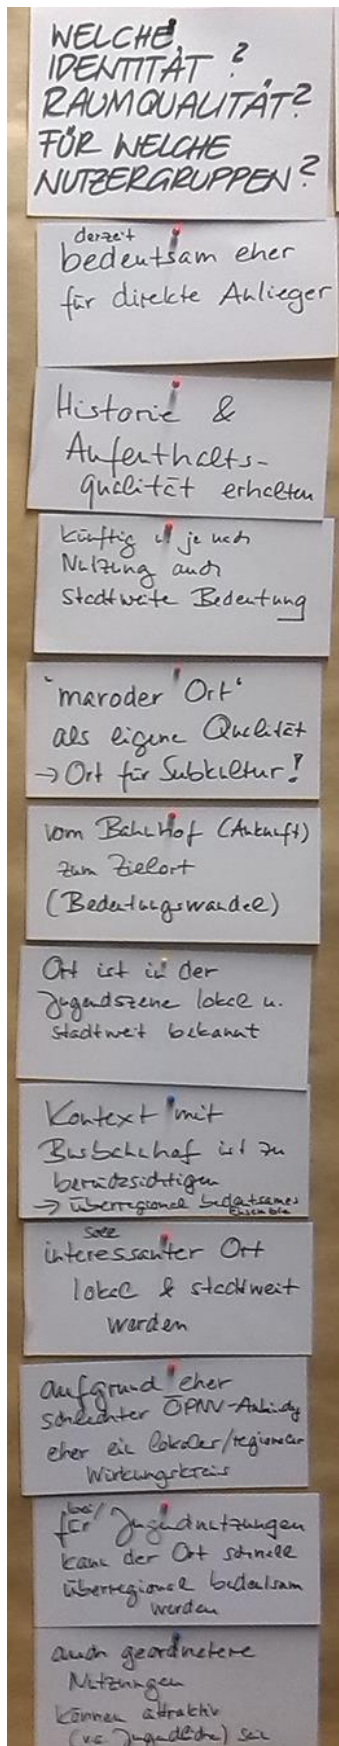 WELCHE
IDENTITÄT ?
RAUMQUALITÄT?
FÜR WELCHE
NUTZERGRUPPEN?
derzeit
bedeutsam eher
für direkte Anlieger
Historie &
Aufenthalts-
qualität erhalten
künftig u je nach
Nutzung auch
stadtweite Bedeutung
"maroder Ort"
als eigene Qualität
→ Ort für Subkultur!
vom Bahnhof (Ankunft)
zum Zielort
(Bedeutungswandel)
Ort ist in der
Jugendszene lokal u.
stadtweit bekannt
Kontext mit
Busbahnhof ist zu
berücksichtigen
→ überregional bedeutsames
Ensemble
soll
interessanter Ort
lokal & stadtweit
werden
aufgrund eher
schlechter ÖPNV-Anbindg
eher ein lokaler/regionaler
Wirkungskreis
bei/
für Jugendnutzungen
kann der Ort schnell
überregional bedeutsam
werden
auch geordnetere
Nutzungen
können attraktiv
(v.a. Jugendliche) sein